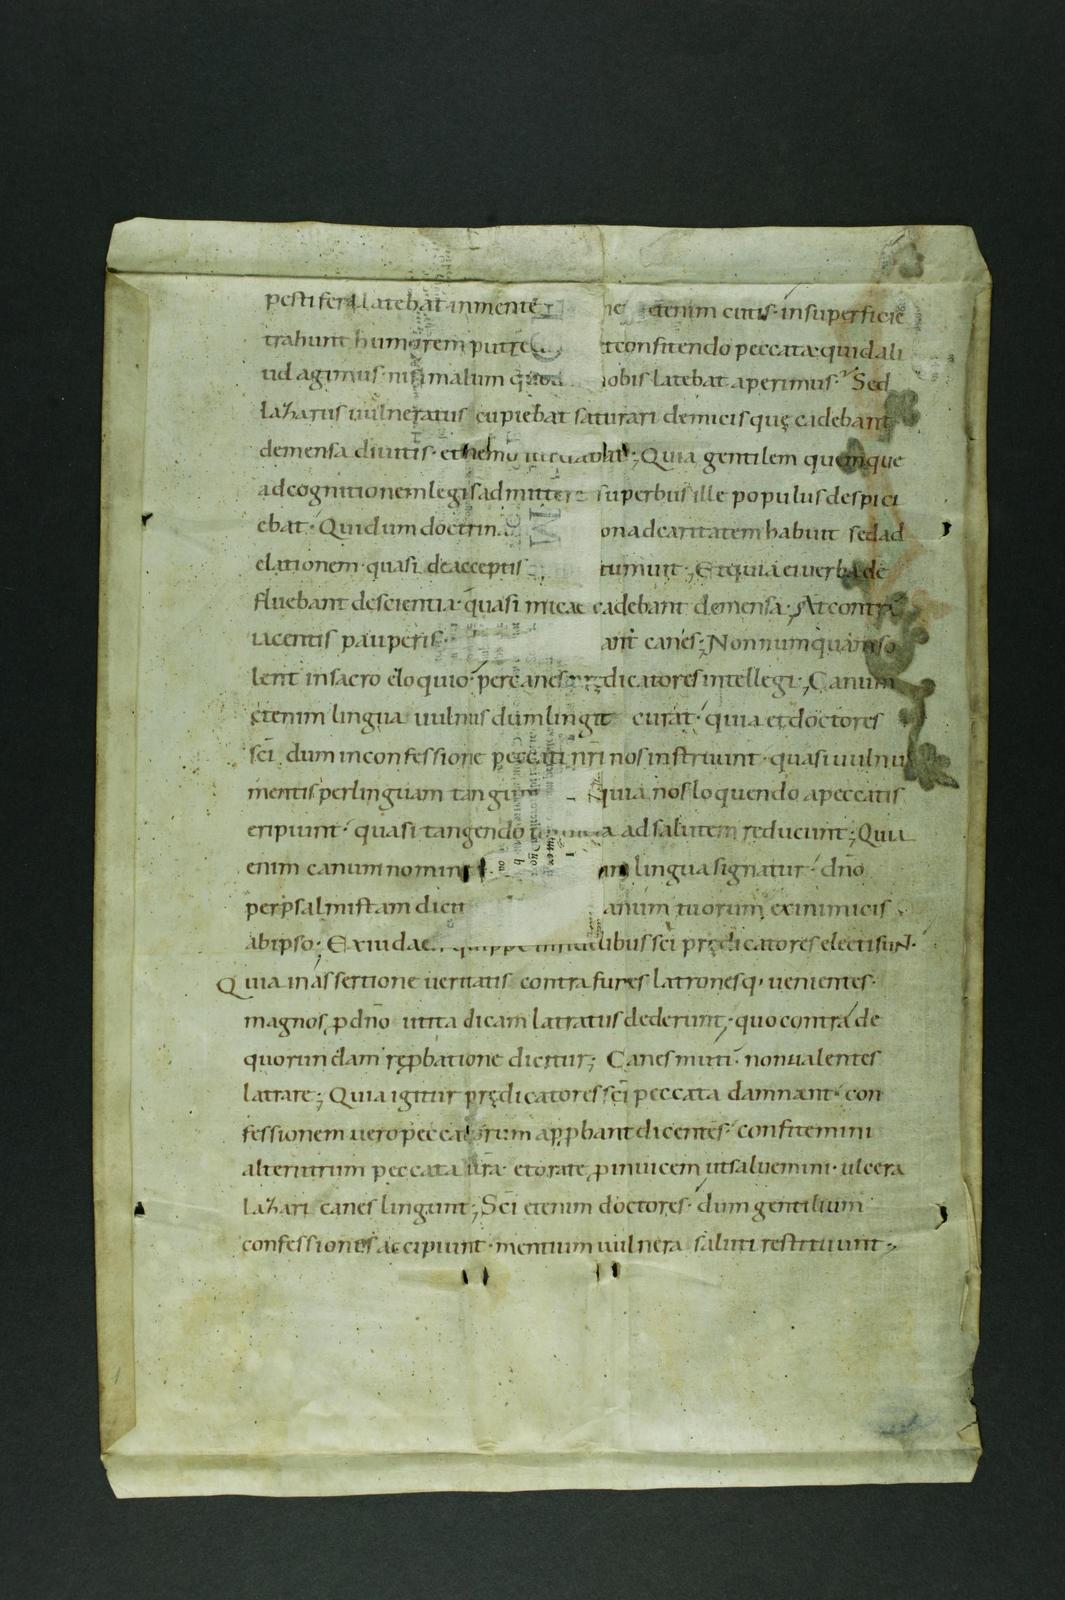 pestifere latebat inmente etenim cutis· insuperficie
trahunt humorem putre confitendo peccata· quid ali
ud agimus· nisi malum quod nobis latebat aperimus· Sed
lazarus uulneratus cupiebat saturari demicis quę cadebant
demensa diuitis· et nemo ; Quia gentilem quemque
adcognitionem legis admittere superbus ille populus despici
ebat· Qui dum doctrin on ad caritatem habuit sed ad
elationem· quasi deacceptis tumuit ; Et quia ei uerba de
fluebant descientia· quasi micae cadebant demensa· At contra
iacentis pauperis· ant canes ; Non numquam so
lent in sacro eloquio· per canes prędicatores intellegi ; Canum
etenim lingua uulnus dum lingit curat· quia et doctores
sc̄i dum inconfessione peccati nr̄i nos instruunt· quasi uulnus
mentis per linguam tangunt quia nos loquendo a peccatis
eripiunt· quasi tangendo adsalutem reducunt ; Quia
enim canum nomine lingua signatur· dn̄o
per psalmistam dicit canum tuorum ex inimicis
ab ipso· Ex iudaeis quippe infidelibus sc̄i prędicatores electi sunt·
Quia in assertione ueritatis contra fures latronesq· uenientes·
magnos p dn̄o ut ita dicam latratus dederunt· quo contra de
quorundam repbatione dicitur ; Canes muti· non ualentes
latrare ; Quia igitur prędicatores sc̄i peccata damnant· con
fessionem uero peccatorum appbant dicentes· confitemini
alterutrum peccata ur̄a· et orate p inuicem ut saluemini· ulcera
lazari canes lingunt ; Sc̄i etenim doctores· dum gentilium
confessiones accipiunt· mentium uulnera saluti restituunt ;